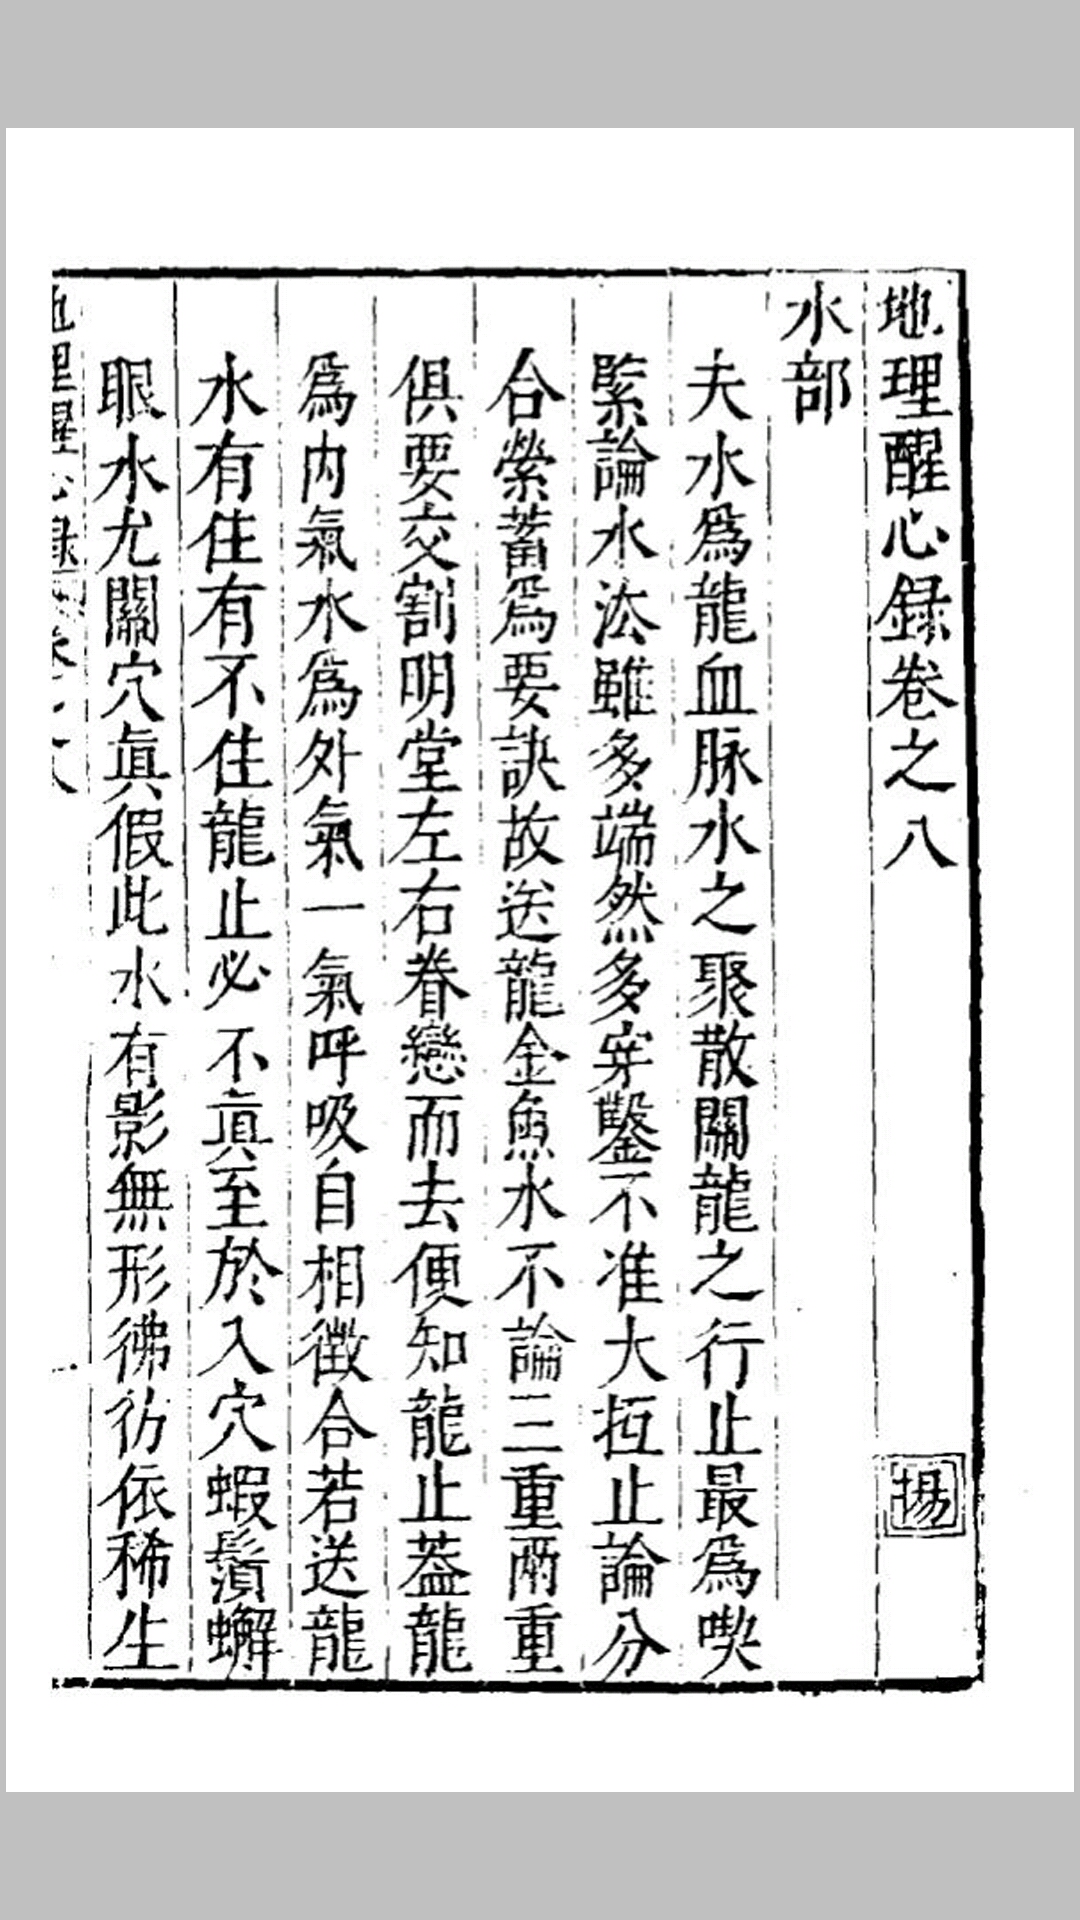 地理醒心録卷之八
楊
水部
夫水爲龍血脉水之聚散關龍之行止最爲喫
緊論水法雖多端然多穿鑿不准大抵止論分
合縈蓄爲要訣故送龍金魚水不論三重兩重
俱要交割明堂左右眷戀而去便知龍止葢龍
爲内氣水爲外氣一氣呼吸自相徵合若送龍
水有住有不住龍止必不眞至於入穴蝦鬚蠏
眼水尤關穴眞假此水有影無形彿彷依稀生